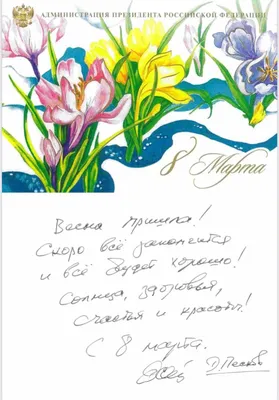 АДМИНИСТРАЦИЯ ПРЕЗИДЕНТА РОССИЙСКОЙ ФЕДЕРАЦИИ
8 Марта
Весна пришла!
Скоро всё
и всё будет хорошо!
Солнца, здоровья,
счастья и красоты!
С 8 марта.
ДПесков